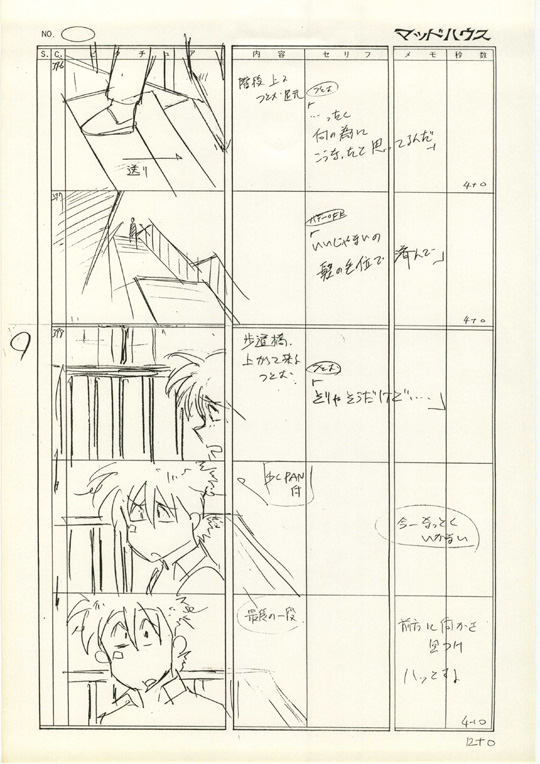 NO.
マッドハウス
S. C. ピクチュア 内容 セリフ メモ 秒数
階段上る
つとむ 足元
つとむ
「…ったく
何の為に
こうなったと思ってるんだ」
送り
4+0
「いいじゃないの
髪の色位で 済んで」
4+0
9
歩道橋、
上がって来る
つとむ
つとむ
「そりゃそうだけど・・・・」
少しPAN
付
今一なっとく
いかない
最後の一段
前方に何かを
見つけ
ハッとする
4+0
12+0